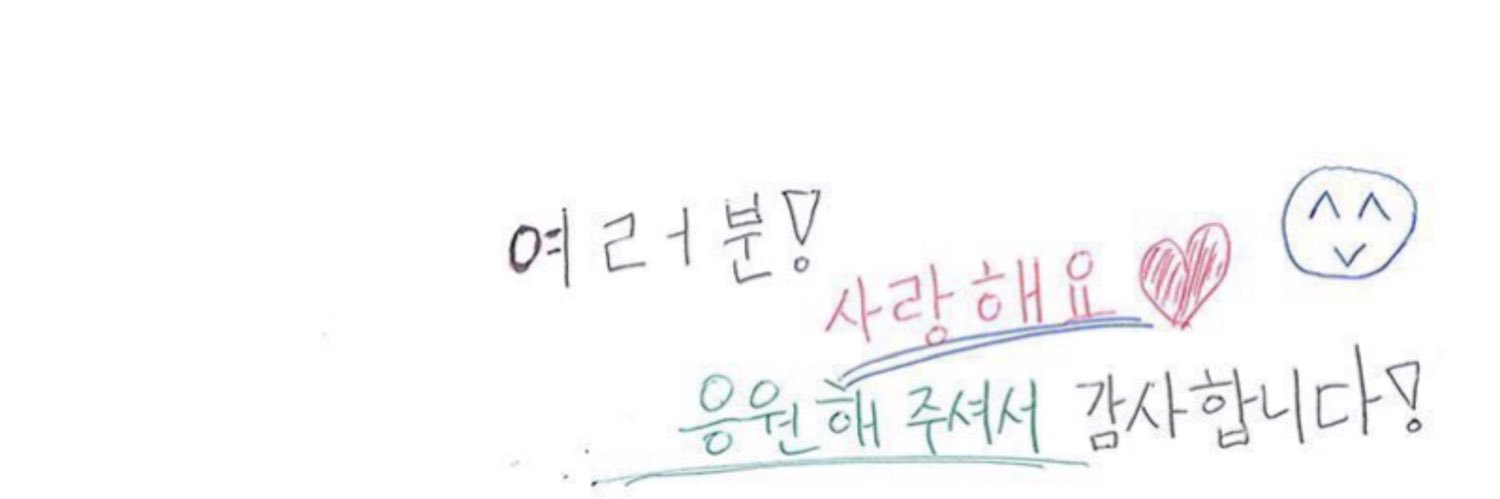 여러분!
사랑해요
응원해 주셔서 감사합니다!